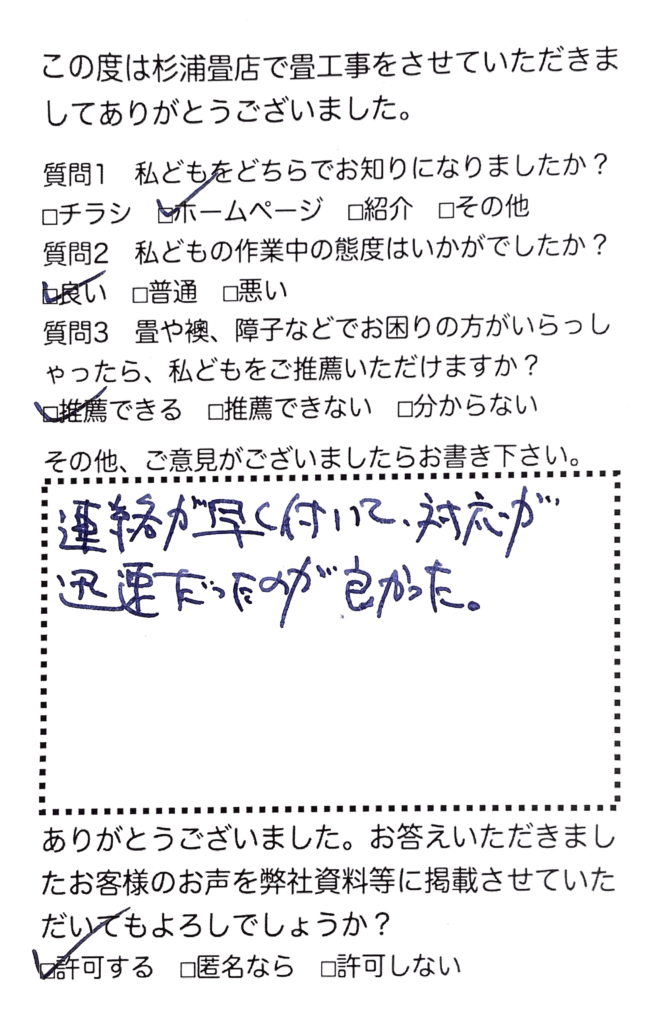 この度は杉浦畳店で畳工事をさせていただきま
してありがとうございました。
質問1　私どもをどちらでお知りになりましたか？
☑チラシ　☑ホームページ　□紹介　□その他
質問2　私どもの作業中の態度はいかがでしたか？
☑良い　□普通　□悪い
質問3　畳や襖、障子などでお困りの方がいらっし
ゃったら、私どもをご推薦いただけますか？
☑推薦できる　□推薦できない　□分からない
その他、ご意見がございましたらお書き下さい。
連絡が早く付いて、対応が
迅速だったのが良かった。
ありがとうございました。お答えいただきまし
たお客様のお声を弊社資料等に掲載させていた
だいてもよろしでしょうか？
☑許可する　□匿名なら　□許可しない